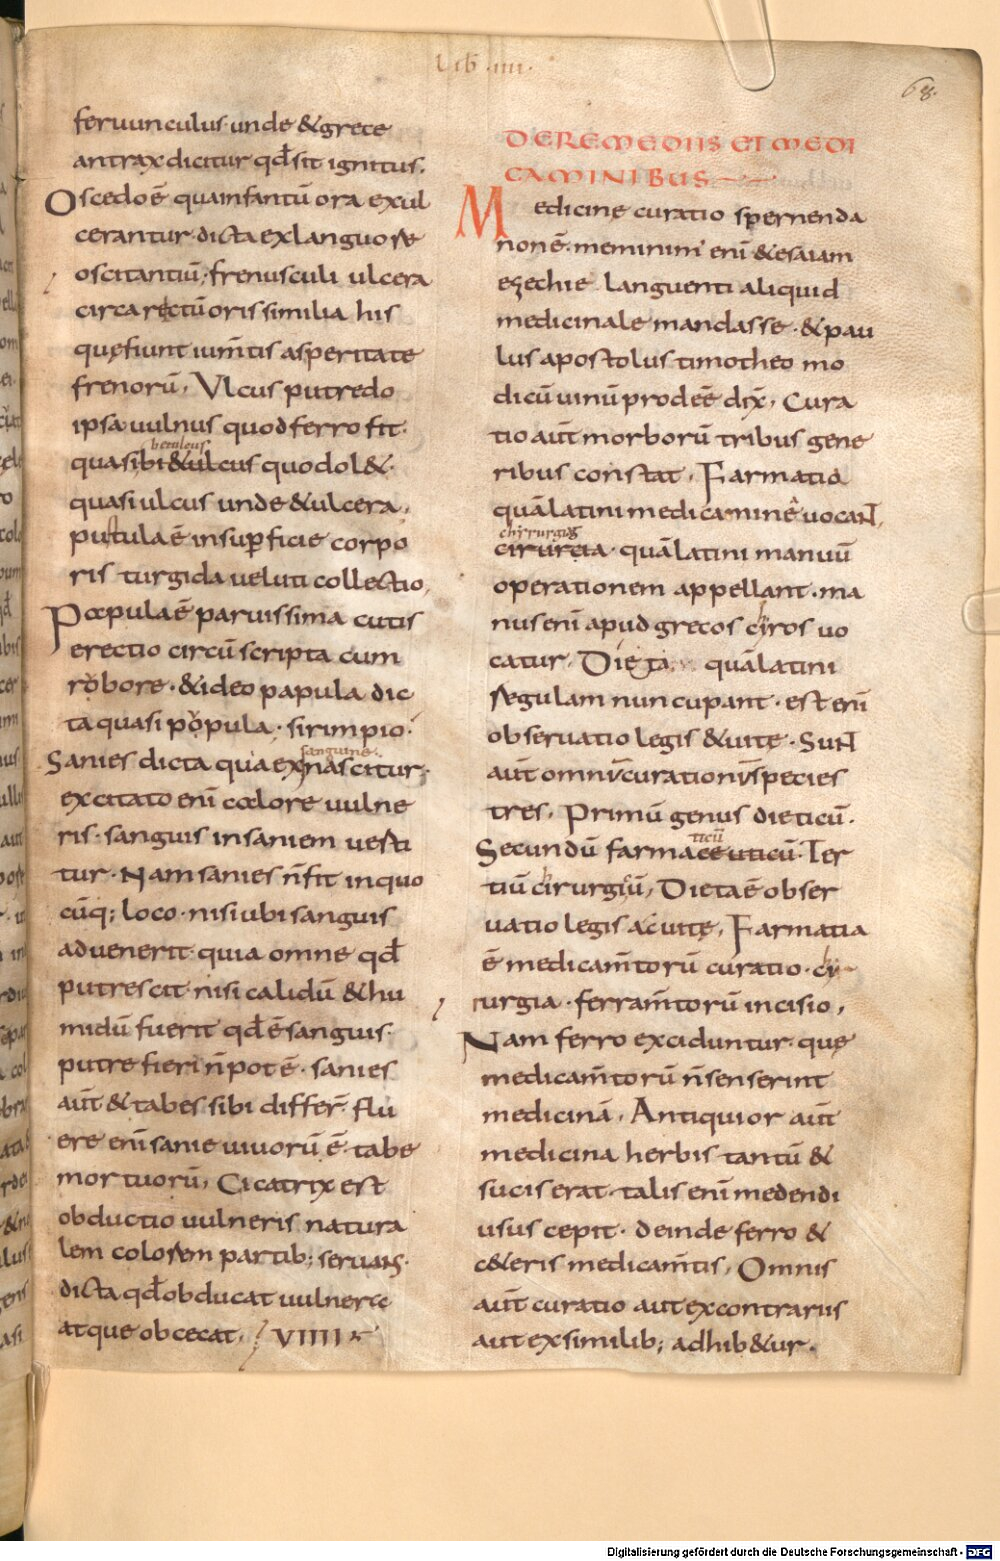 Lib̄ · IIII ·
68.
feruunculus· unde &grece
antrax dicitur qđ sit ignitus.
Oscedo ē quainfantū ora exul
cerantur· dicta exlanguore
oscitantiū; frenusculi ulcera
circa rictū oris similia his
quę fiunt ium̄tis asperitate
frenorū, Vlcus putredo
ipsa uulnus quod ferro fit·
quasi bi&ulcus quod ol&·
quasi ulcus unde &ulcera,
pustula ē insup̄ficie corpo
ris turgida ueluti collectio,
Papula ē paruissima cutis
erectio circū scripta cum
robore· &ideo papula dic
ta quasi popula· sirimpio·
sanguine·
Sanies dicta qua ex nascitur·
excitato enī calore uulne
ris· sanguis insaniem uerti
tur· Nam sanies n̄ fit inquo
cūq; loco· nisi ubi sanguis
aduenerit· quia omne qđ
putrescit· nisi calidū &hu
midū fuerit qđ ē sanguis·
putre fieri n̄ pot ē· sanies
aūt & tabes sibi differ̄· flu
ere enī sanie uiuorū ē· tabe
mortuorū, Cicatrix est
obductio uulneris natura
lem colorem partib; seruans·
dicta qđ obducat uulnera
atque obcecat, VIIII
DE REMEDIIS ET MEDI
CAMINIBUS
Medicine curatio spernenda
non ē· meminim' enī &esaiam
ezechie languenti aliquid
medicinale mandasse· &pau
lus apostolus timotheo mo
dicū uinū prodeē dix̄, Cura
tio aūt morborū tribus gene
ribus constat, Farmatia
quā latini medicamine uocaNT,
cirurcia· quā latini manuū
operationem appellant· ma
nus enī apud grecos cyros uo
catur, Dieta quā latini
regulam nuncupant· est enī
obseruatio legis &uitę· SuNT
aūt omniū curationū species
tres, Primū genus dieticū·
ticū
Secundū farmaceuticū· Ter
tiū cirurgiū, Dieta ē obser
uatio legis ac uitę, Farmatia
ē medicam̄torū curatio· cy
rurgia· ferram̄torū incisio,
Nam ferro exciduntur· quę
medicam̄torū n̄ senserint
medicinā, Antiquior aūt
medicina herbis tantū &
sucis erat· talis enī medendi
usus cepit· deinde ferro &
c&eris medicam̄tis, Omnis
aūt curatio aut excontrariis
aut exsimilib; adhib&ur·
Digitalisierung gefördert durch die Deutsche Forschungsgemeinschaft - DFG